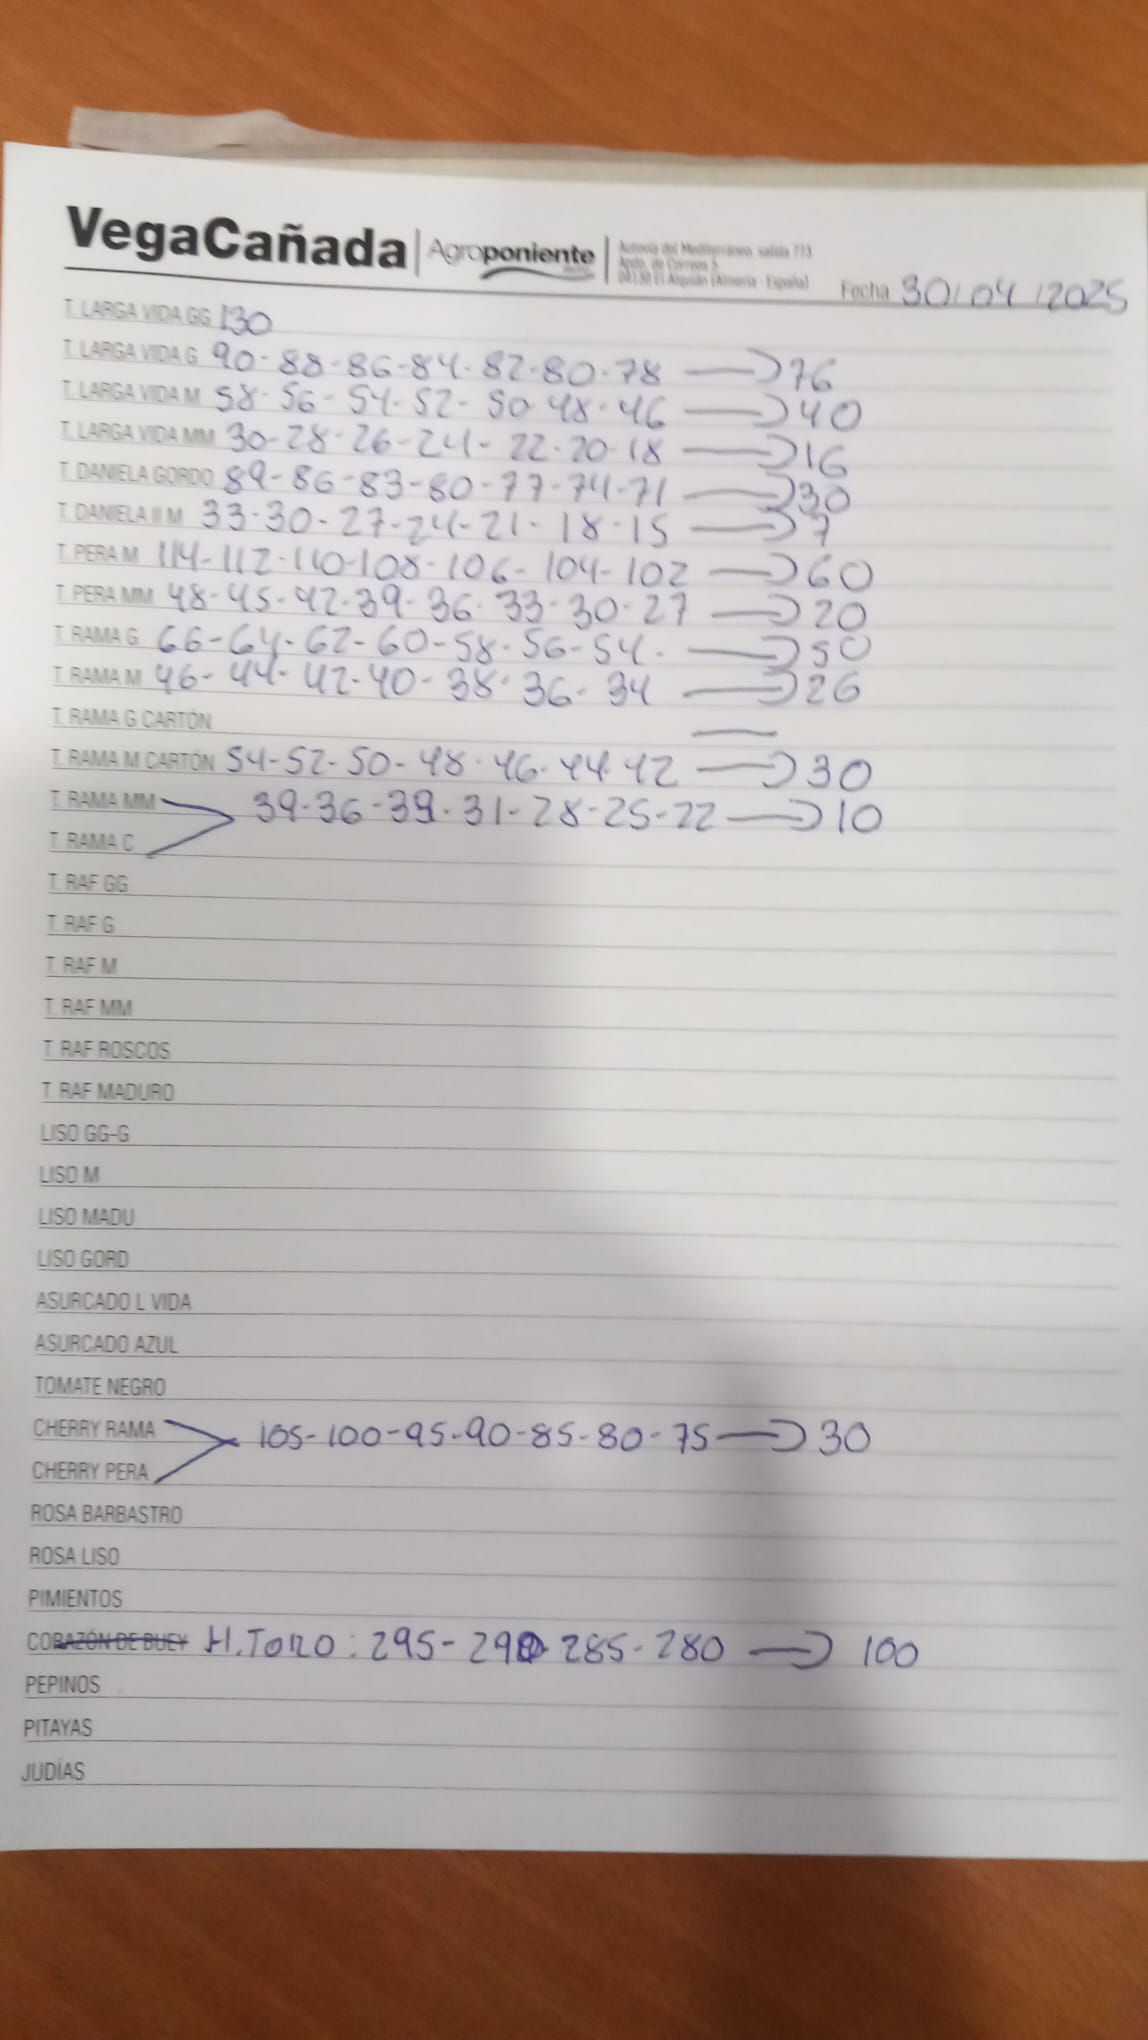 VegaCañada | Agroponiente | Autovía del Mediterráneo, salida 773
Apdo. de Correos 5
04130 El Alquián (Almería - España)
Fecha 30/04/2025
T. LARGA VIDA GG 130
T. LARGA VIDA G 90-88-86-84-82-80-78 → 76
T. LARGA VIDA M 58-56-54-52-50-48-46 → 40
T. LARGA VIDA MM 30-28-26-24-22-20-18 → 16
T. DANIELA GORDO 89-86-83-80-77-74-71 → 30
T. DANIELA II M 33-30-27-24-21-18-15 → 7
T. PERA M 114-112-110-108-106-104-102 → 60
T. PERA MM 48-45-42-39-36-33-30-27 → 20
T. RAMA G 66-64-62-60-58-56-54. → 50
T. RAMA M 46-44-42-40-38-36-34 → 26
T. RAMA G CARTÓN —
T. RAMA M CARTÓN 54-52-50-48-46-44-42 → 30
T. RAMA MM 39-36-39-31-28-25-22 → 10
T. RAMA C
T. RAF GG
T. RAF G
T. RAF M
T. RAF MM
T. RAF ROSCOS
T. RAF MADURO
LISO GG-G
LISO M
LISO MADU
LISO GORD
ASURCADO L VIDA
ASURCADO AZUL
TOMATE NEGRO
CHERRY RAMA 105-100-95-90-85-80-75 → 30
CHERRY PERA
ROSA BARBASTRO
ROSA LISO
PIMIENTOS
CORAZÓN DE BUEY H.TORO: 295-290-285-280 → 100
PEPINOS
PITAYAS
JUDÍAS